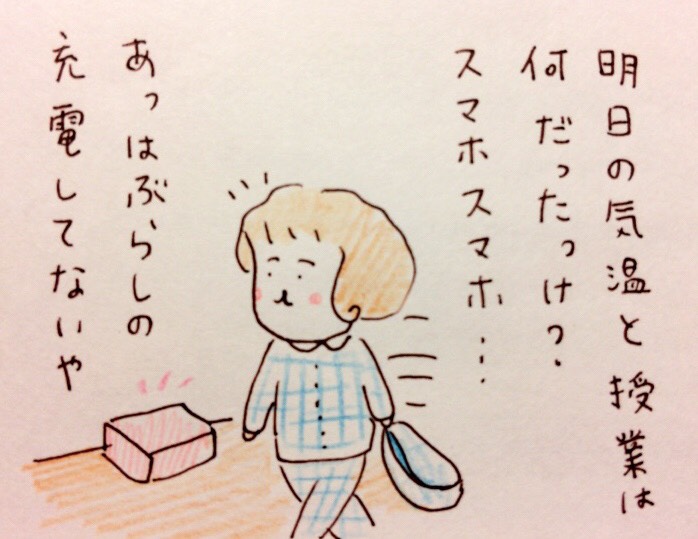 明日の気温と授業は
何だったっけ?
スマホスマホ…
あっはぶらしの
充電してないや